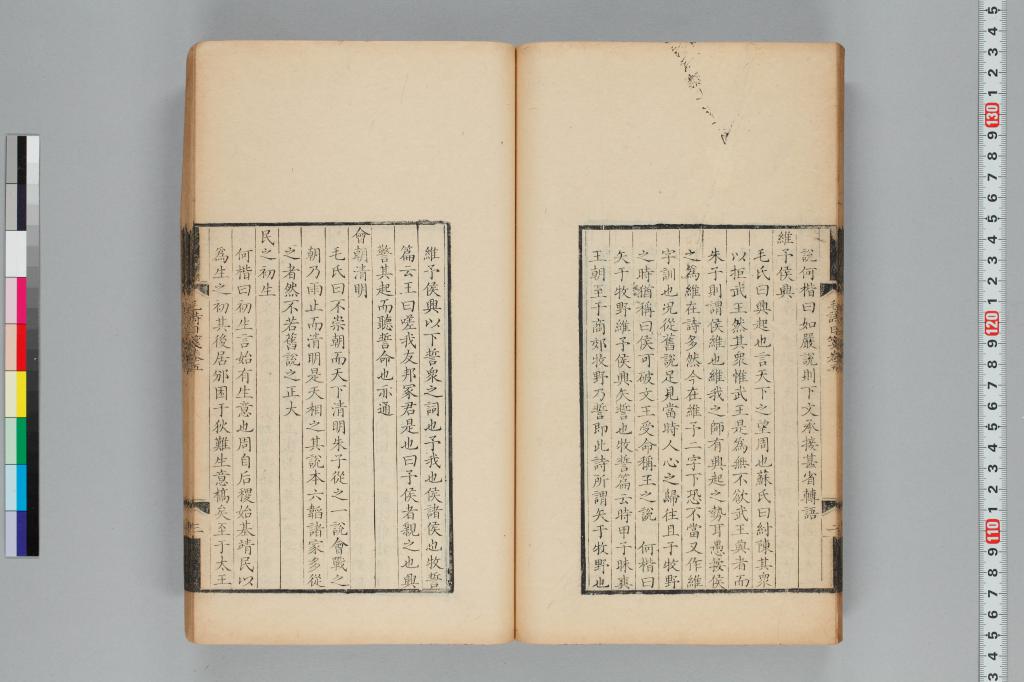 說何楷曰如嚴說則下文承接甚省轉語
維予侯興
毛氏曰興起也言天下之望周也蘇氏曰紂陳其衆
以拒武王然其衆惟武王是為無不欲武王興者而
朱子則謂侯維也維我之師有興起之勢耳愚按侯
之為維在詩多然今在維予二字下恐不當又作維
字訓也况從舊說足見當時人心之歸往且于牧野
之時猶稱曰侯可破文王受命稱王之說　何楷曰
矢于牧野維予侯興矢誓也牧誓篇云時甲子昧爽
王朝至于商郊牧野乃誓即此詩所謂矢于牧野也
毛詩日箋卷五
二
維予侯興以下誓衆之詞也予我也侯諸侯也牧誓
篇云王曰嗟我友邦冢君是也曰予侯者親之也興
警其起而聽誓命也亦通
會朝清明
毛氏曰不崇朝而天下清明朱子從之一說會戰之
朝乃雨止而清明是天相之其說本六韜諸家多從
之者然不若舊說之正大
民之初生
何楷曰初生言始有生意也周自后稷始基靖民以
為生之初其後居邠困于狄難生意槁矣至于太王
毛詩日箋卷五
三
5 4 3 2 1 130 9 8 7 6 5 4 3 2 1 120 9 8 7 6 5 4 3 2 1 110 9 8 7 6 5 4 3